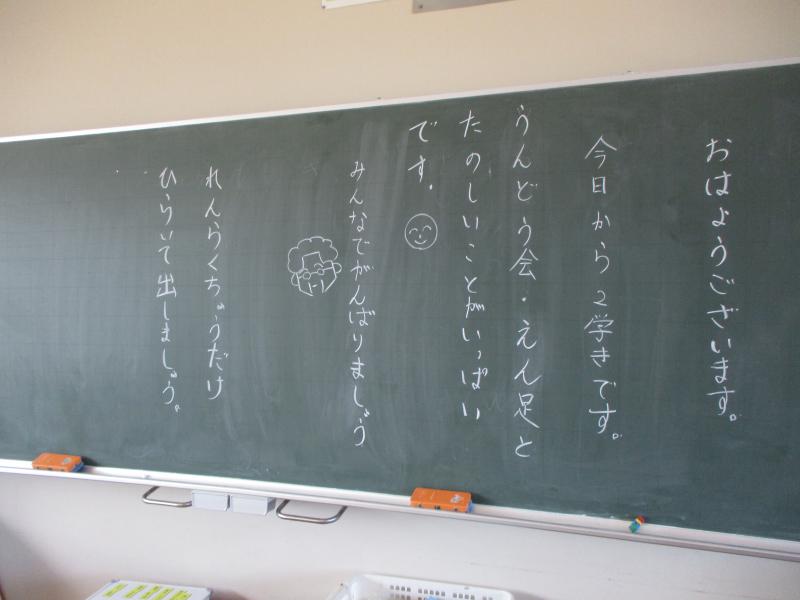 おはようございます。
今日から2学きです。
うんどう会・えん足と
たのしいことがいっぱい
です。
みんなでがんばりましょう
れんらくちょうだけ
ひらいて出しましょう。